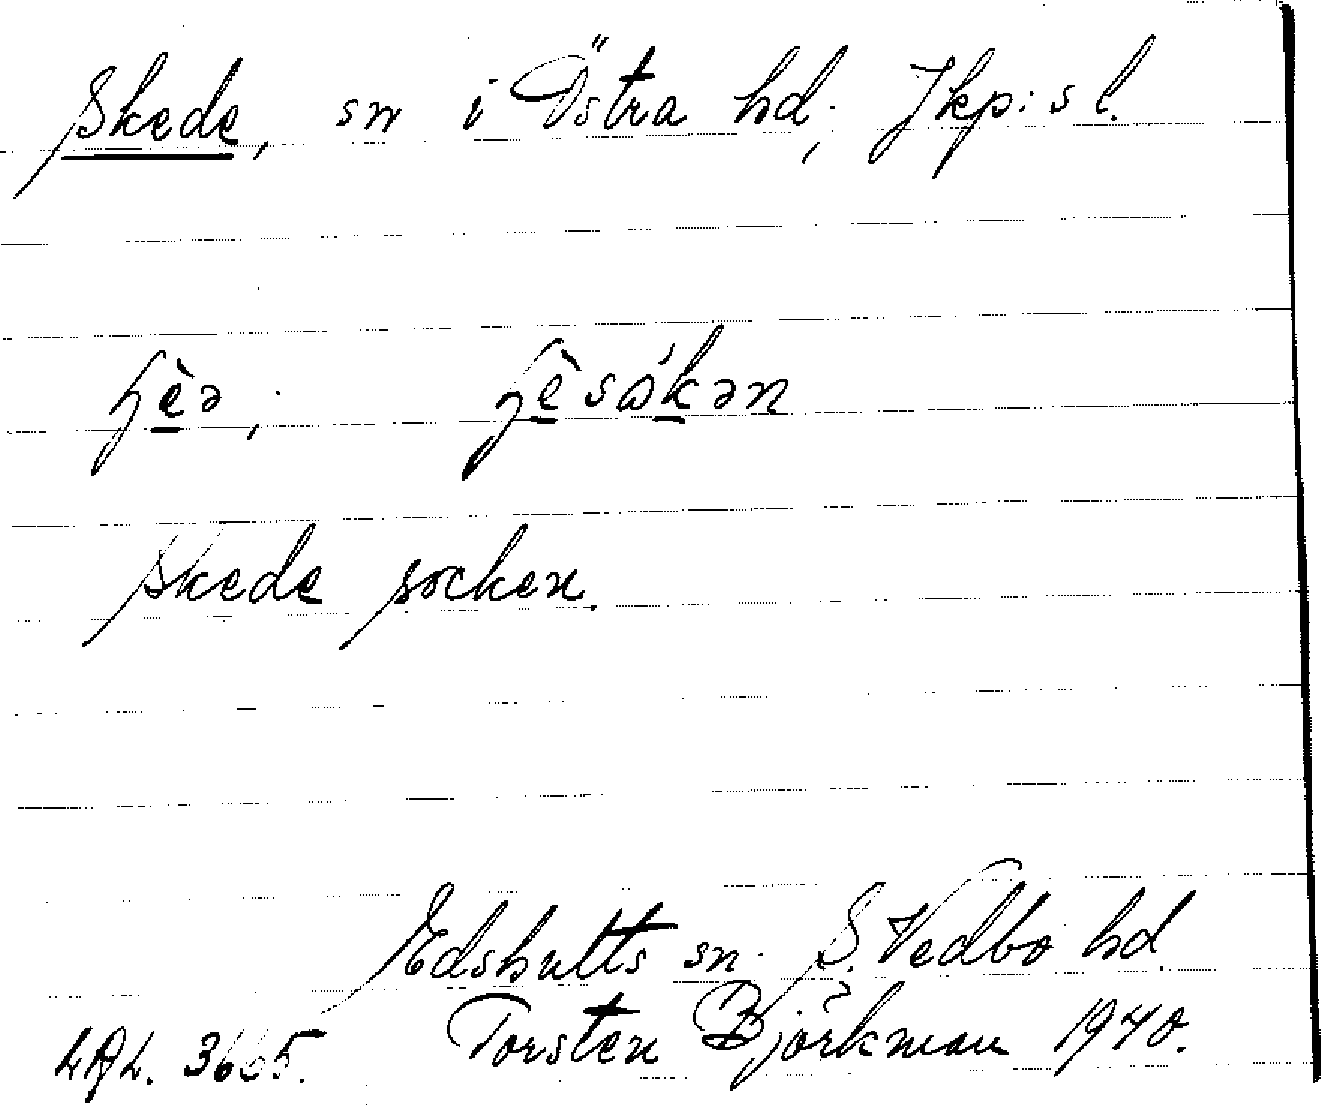 Skede, sn i Östra hd; Jkp:s l.
Skede socken.
Edshults sn. S. Vedbo hd.
LAL. 3665. Torsten Björkman 1940.